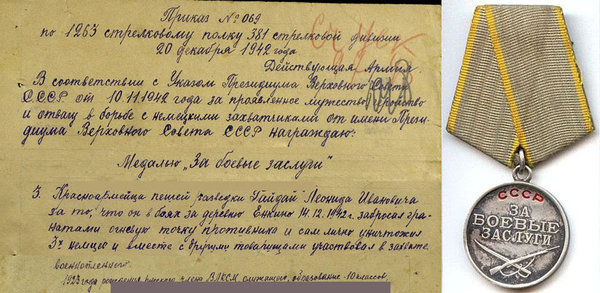 Приказ № 069
по 1263 стрелковому полку 381 стрелковой дивизии
20 декабря 1942 года
Действующая Армия
В соответствии с Указом Президиума Верховного Совета
СССР от 10.11.1942 года за проявленное мужество
и отвагу в борьбе с немецкими захватчиками от имени Прези-
диума Верховного Совета СССР награждаю:
Медалью „За боевые заслуги"
3. Красноармейца пешей разведки Гайдай Леонида Ивановича
за то, что он в боях за деревню Енкино 14.12.1942г. забросал гра-
натами огневую точку противника и сам лично уничтожил
3х немцев и вместе с другими товарищами участвовал в захвате
военнопленного.
1923 года рождения, русского, члена ВЛКСМ, служащего, образование 10 классов,
СССР
ЗА
БОЕВЫЕ
ЗАСЛУГИ